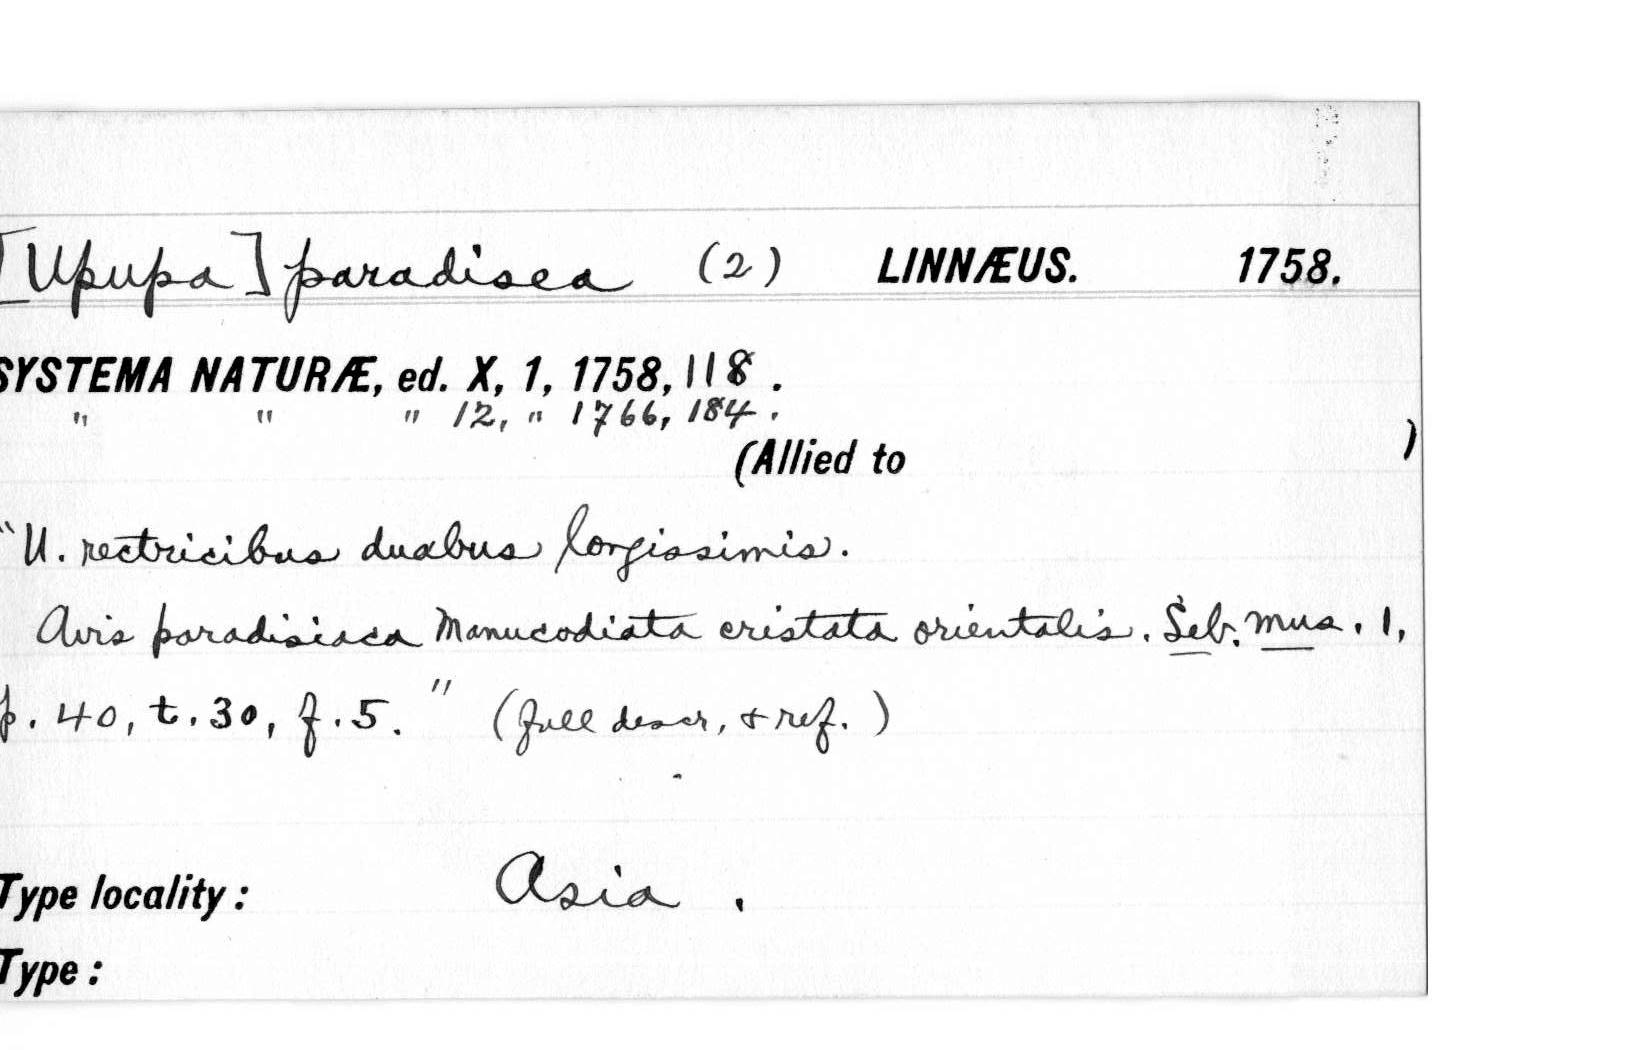 [Upupa] paradisea (2) LINNÆUS. 1758.
SYSTEMA NATURÆ, ed. X, 1, 1758, 118.
" " " 12, " 1766, 184.
(Allied to )
"U. rectricibus duabus longissimis.
Avis paradisiaca Manucodiata cristata orientalis. Seb. mus. 1,
p. 40, t. 30, f. 5." (full descr, & ref.)
Type locality: Asia.
Type: